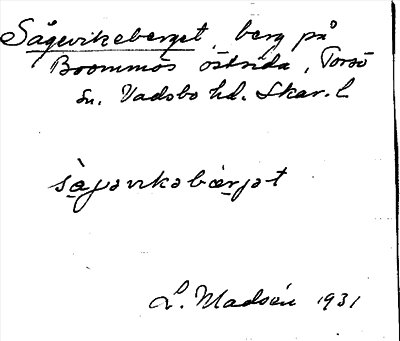 Sågevikeberget, berg på
Boommös östsida, Torsö
sn. Vadsbo hd. Skar. l
sågavikabärjat
L. Madsén 1931